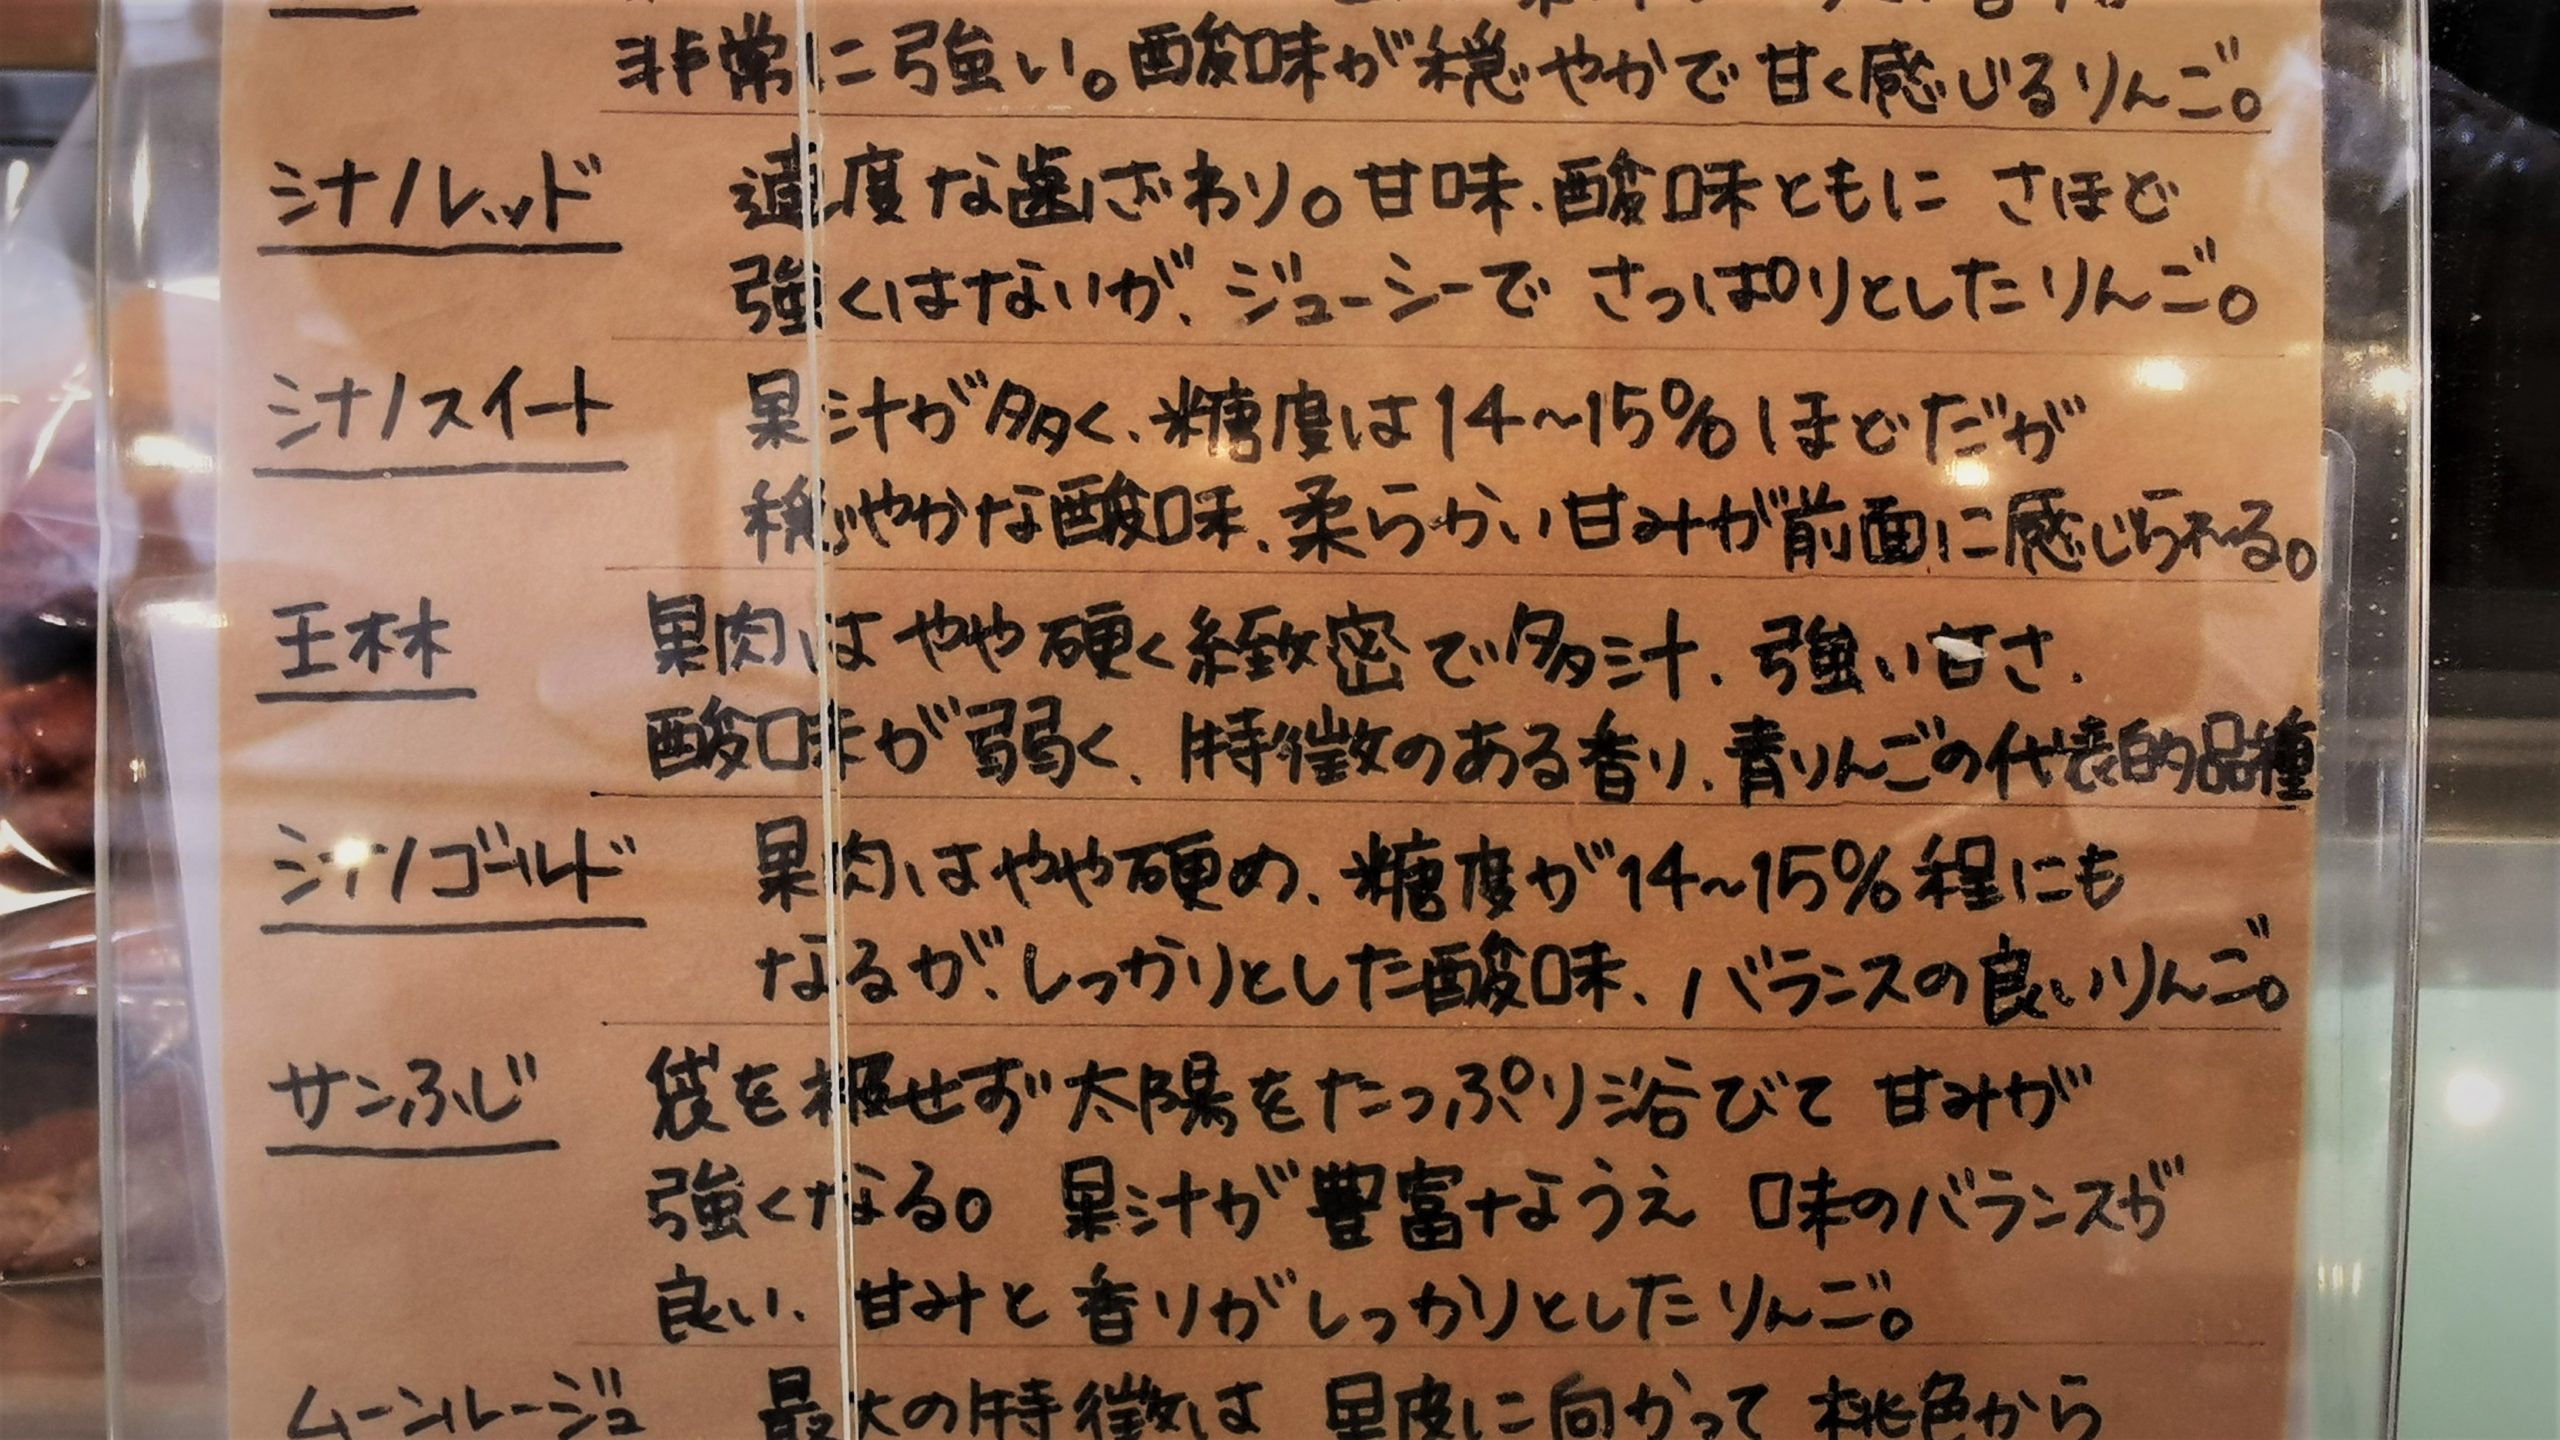 非常に強い。酸味が穏やかで甘く感じるりんご。
シナノレッド 適度な歯ざわり。甘味、酸味ともに さほど
強くはないが、ジューシーで さっぱりとしたりんご。
シナノスイート 果汁が多く、糖度は14~15%ほどだが
穏やかな酸味、柔らかい甘みが前面に感じられる。
王林 果肉はやや硬く緻密で多汁、強い甘さ、
酸味が弱く、特徴のある香り、青りんごの代表的品種
シナノゴールド 果肉はやや硬め、糖度が14~15%程にも
なるが、しっかりとした酸味、バランスの良いりんご。
サンふじ 袋を被せず太陽をたっぷり浴びて 甘みが
強くなる。果汁が豊富なうえ 味のバランスが
良い、甘みと香りがしっかりとしたりんご。
ムーンルージュ 最大の特徴は 果皮に向かって 桃色から